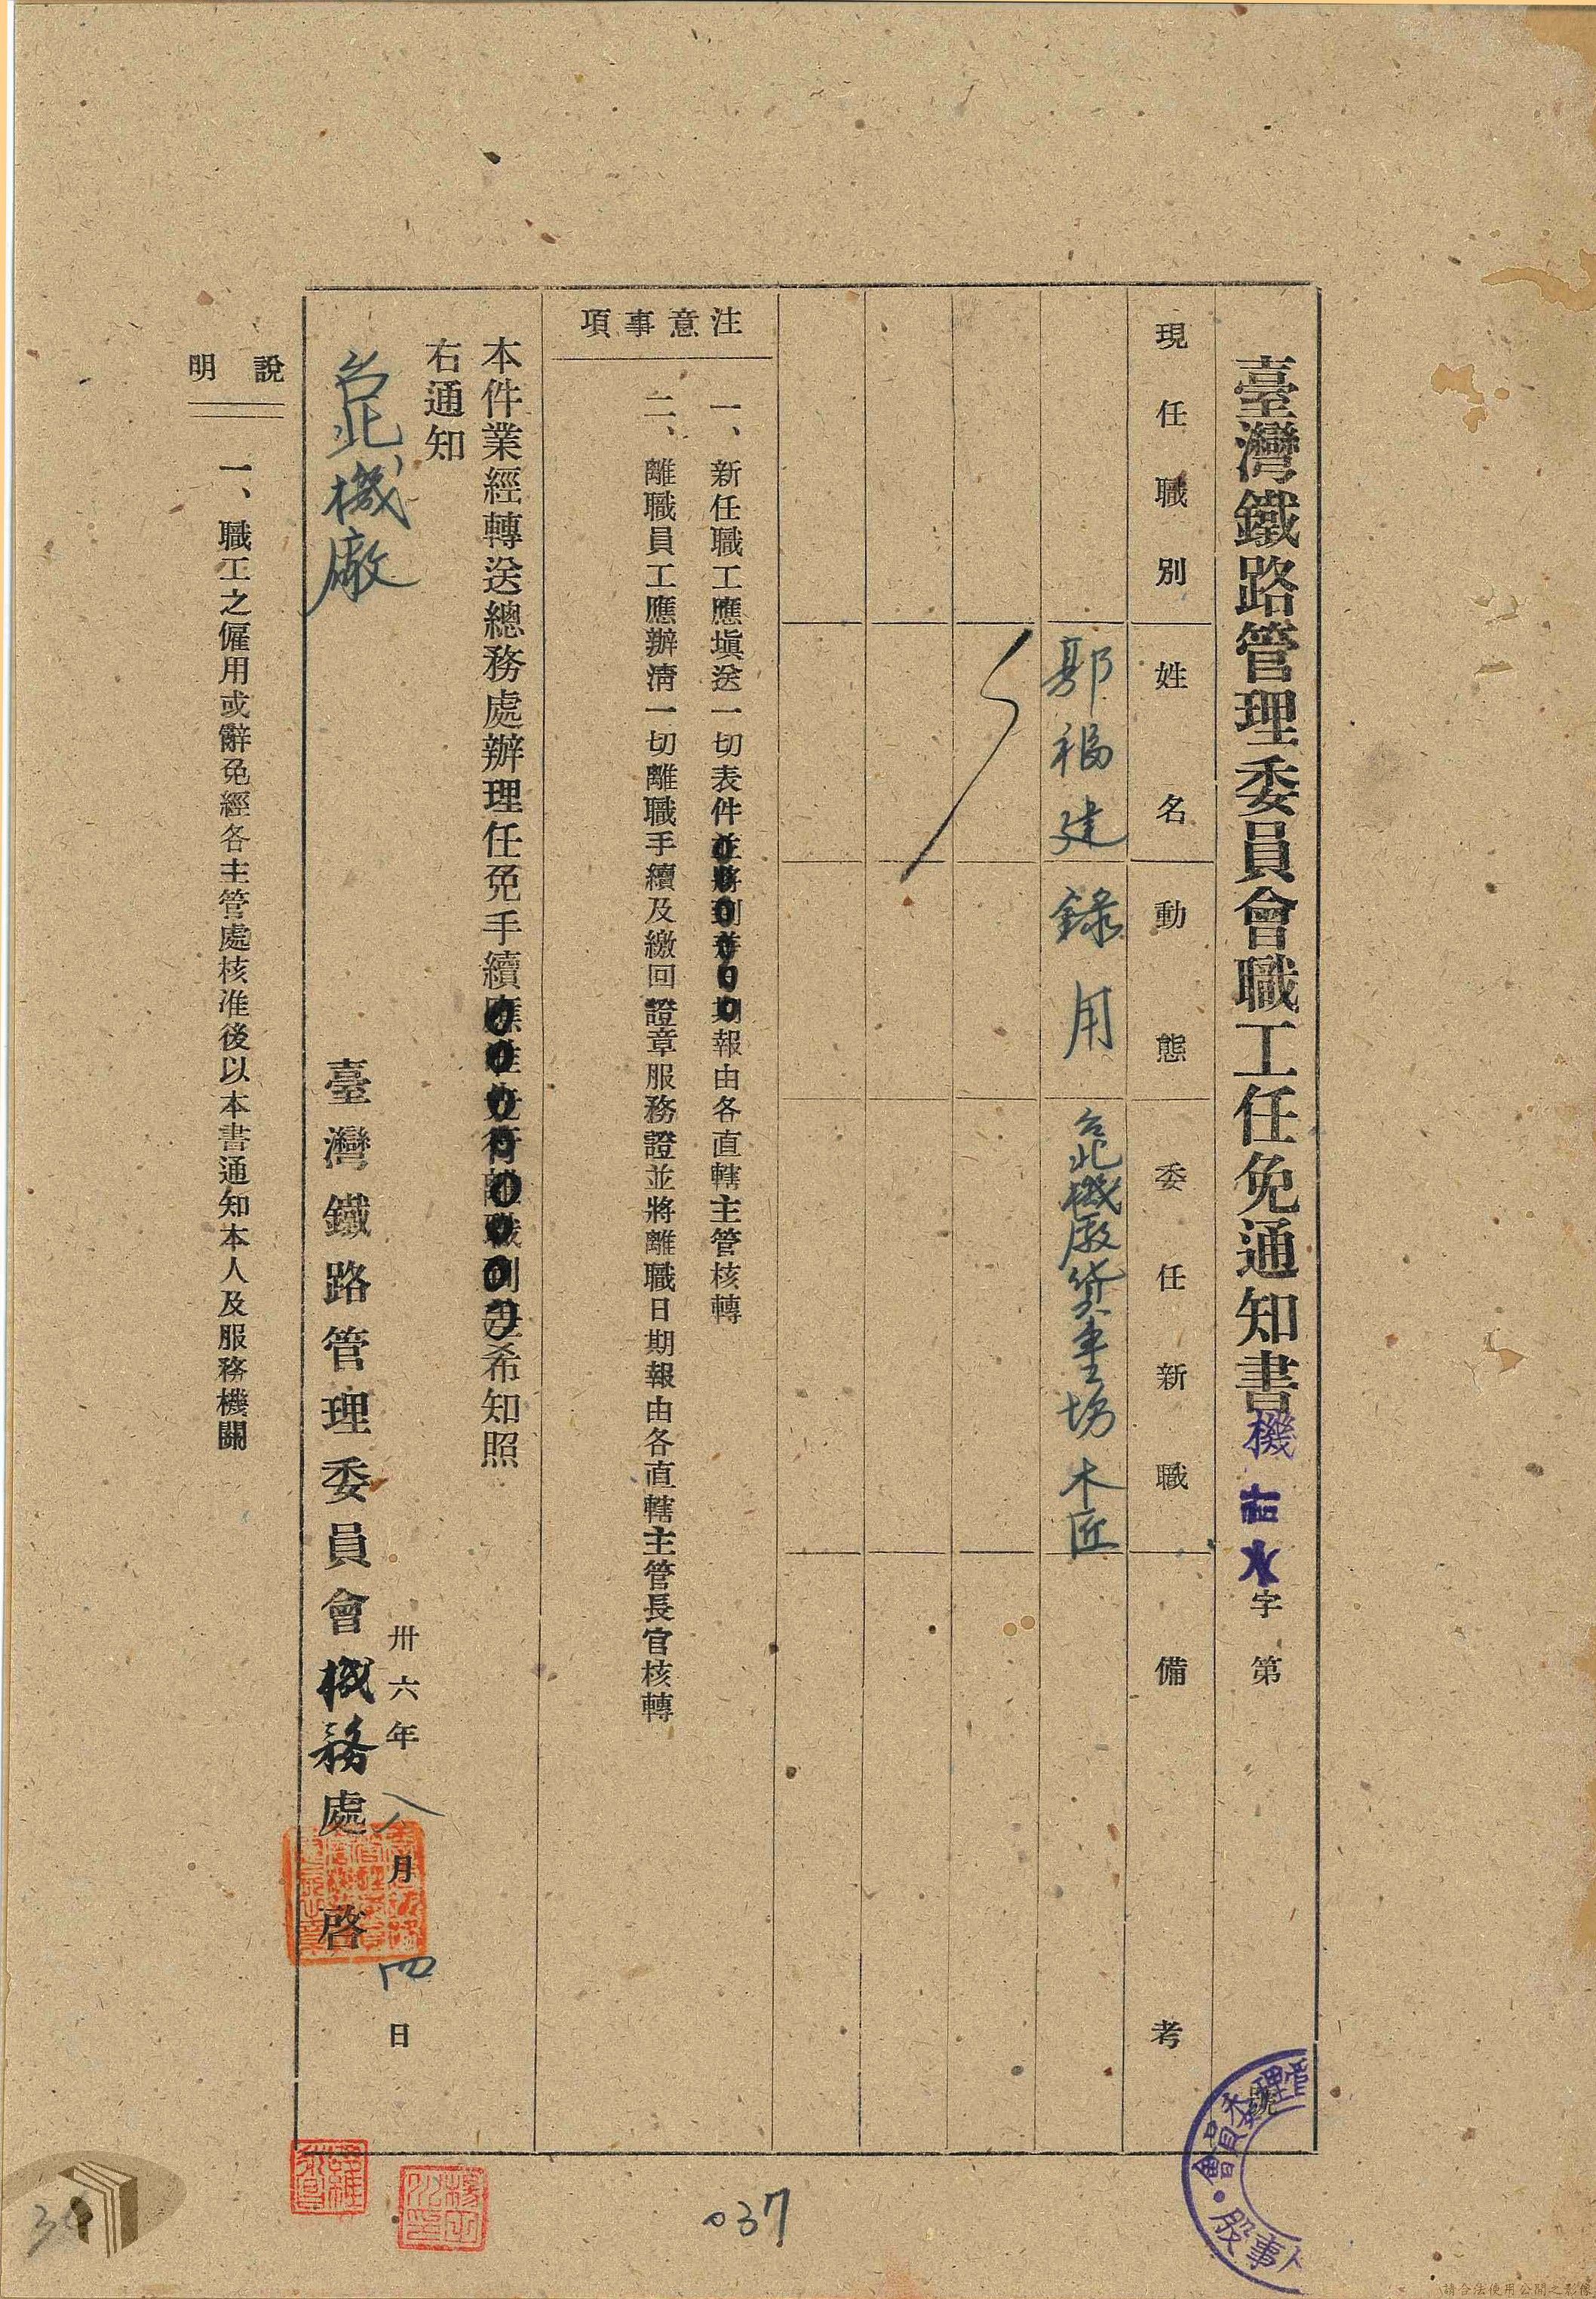 臺灣鐵路管理委員會職工任免通知書 機 字第 號
現任職別 姓名 動態 委任新職 備考
郭福建 錄用 台北機廠貨車場木匠
注意事項
一、新任職工應填送一切表件並將到差日期報由各直轄主管核轉
二、離職員工應辦清一切離職手續及繳回證章服務證並將離職日期報由各直轄主管長官核轉
本件業經轉送總務處辦理任免手續希知照
右通知
台北機廠
卅六年八月四日
臺灣鐵路管理委員會機務處啓
說明
一、職工之僱用或辭免經各主管處核准後以本書通知本人及服務機關
管理委員會・人事股
037
請合法使用公開之影像